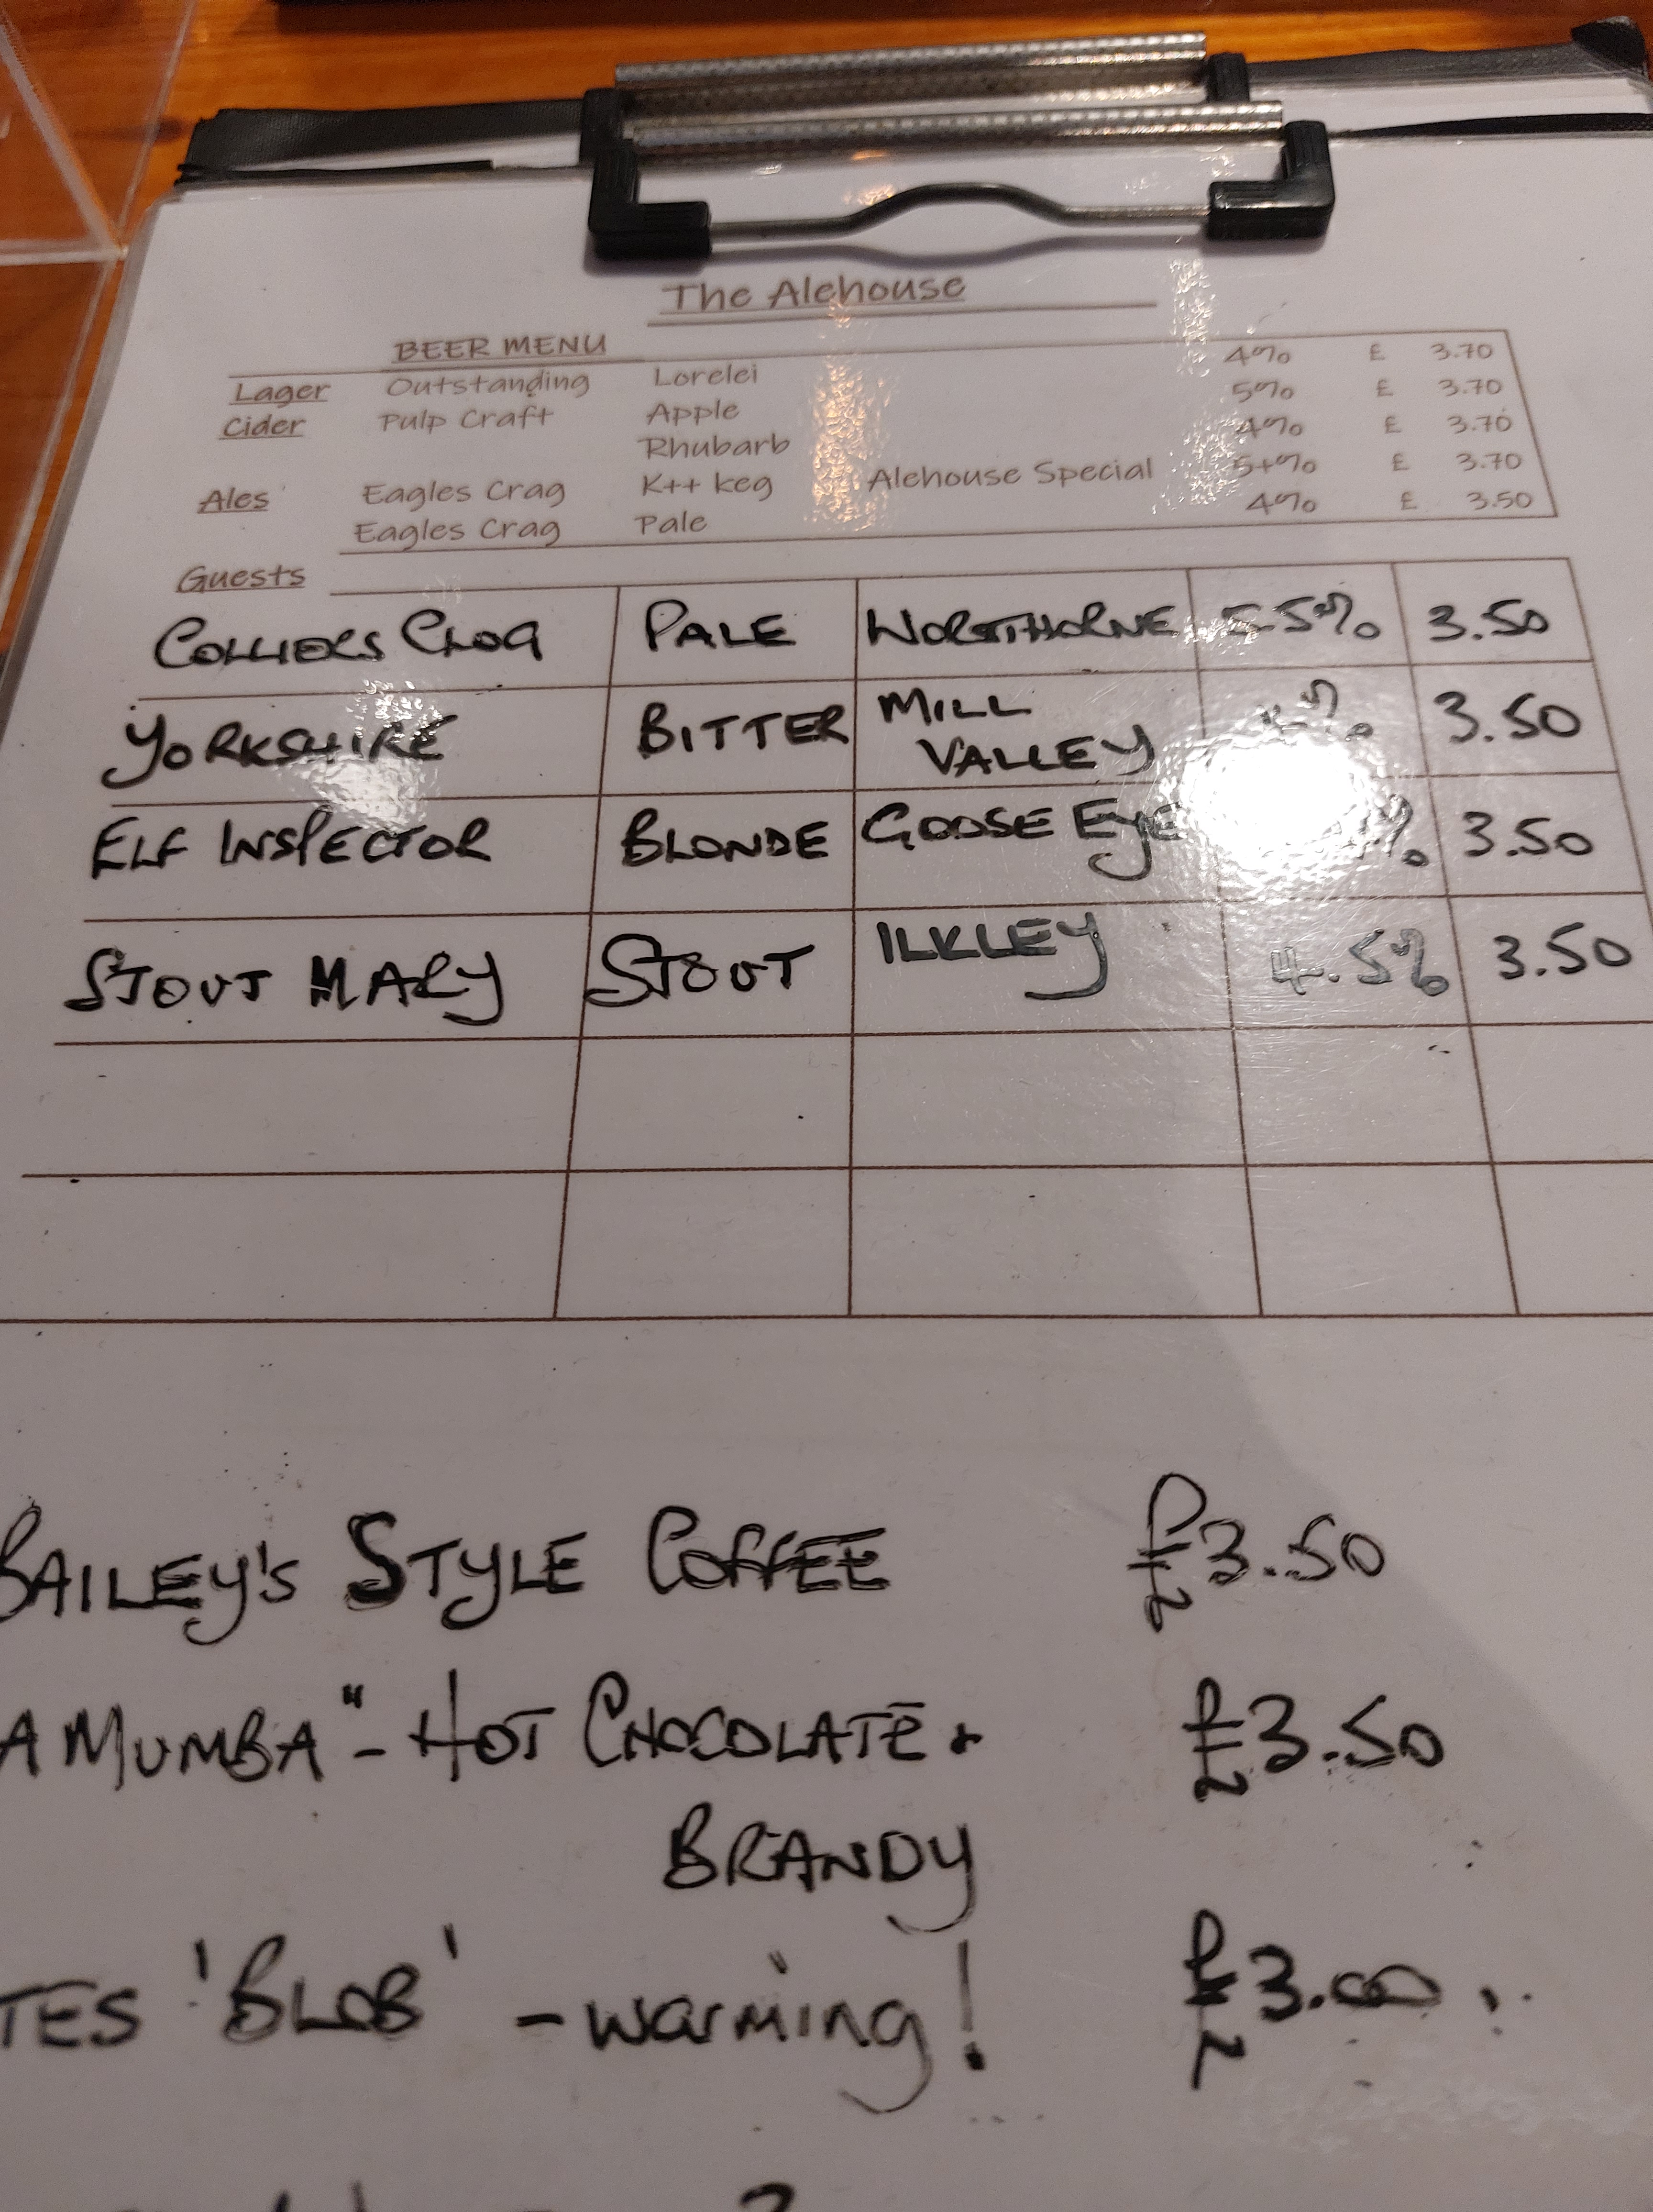 The Alehouse
BEER MENU
Lager Outstanding Lorelei 4% £ 3.70
Cider Pulp Craft Apple 5% £ 3.70
Rhubarb 4% £ 3.70
Ales Eagles Crag K++ keg Alehouse Special 5+% £ 3.70
Eagles Crag Pale 4% £ 3.50
Guests
COLLIERS CLOG PALE 3.50
YORKSHIRE BITTER MILL VALLEY % 3.50
ELF INSPECTOR BLONDE GOOSE EYE % 3.50
STOUT MARY STOUT ILKLEY 4.5% 3.50
BAILEY'S STYLE COFFEE £3.50
A MUMBA" - HOT CHOCOLATE + £3.50
BRANDY
TES 'BLOB' - warming! £3.00